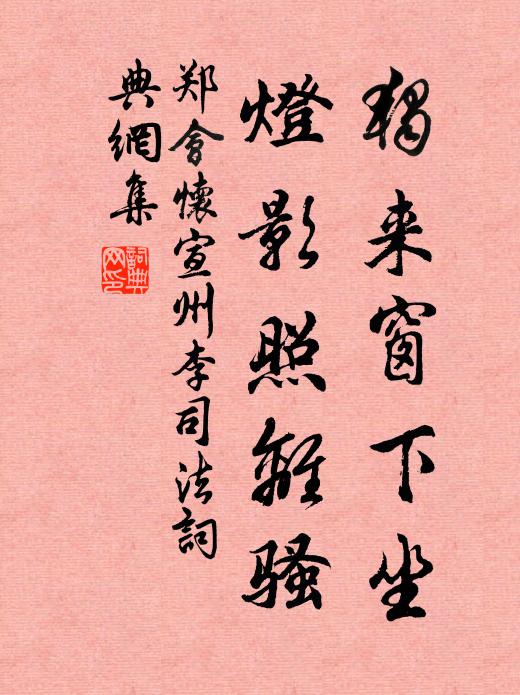 獨来窗下坐
燈影照離騷
郑會懷宣州李司法詞
典網集
詞典网印